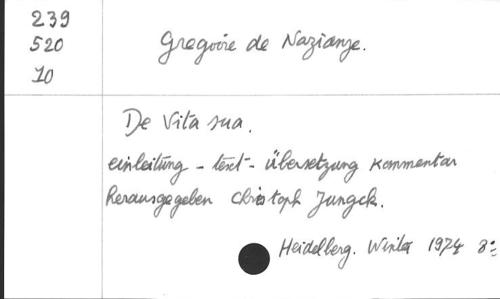 239
520
10
Gregoire de Nazianze.
De Vita sua.
einleitung - text - Übersetzung Kommentar
herausgegeben Christoph Jungck.
Heidelberg. Winter 1974 8°